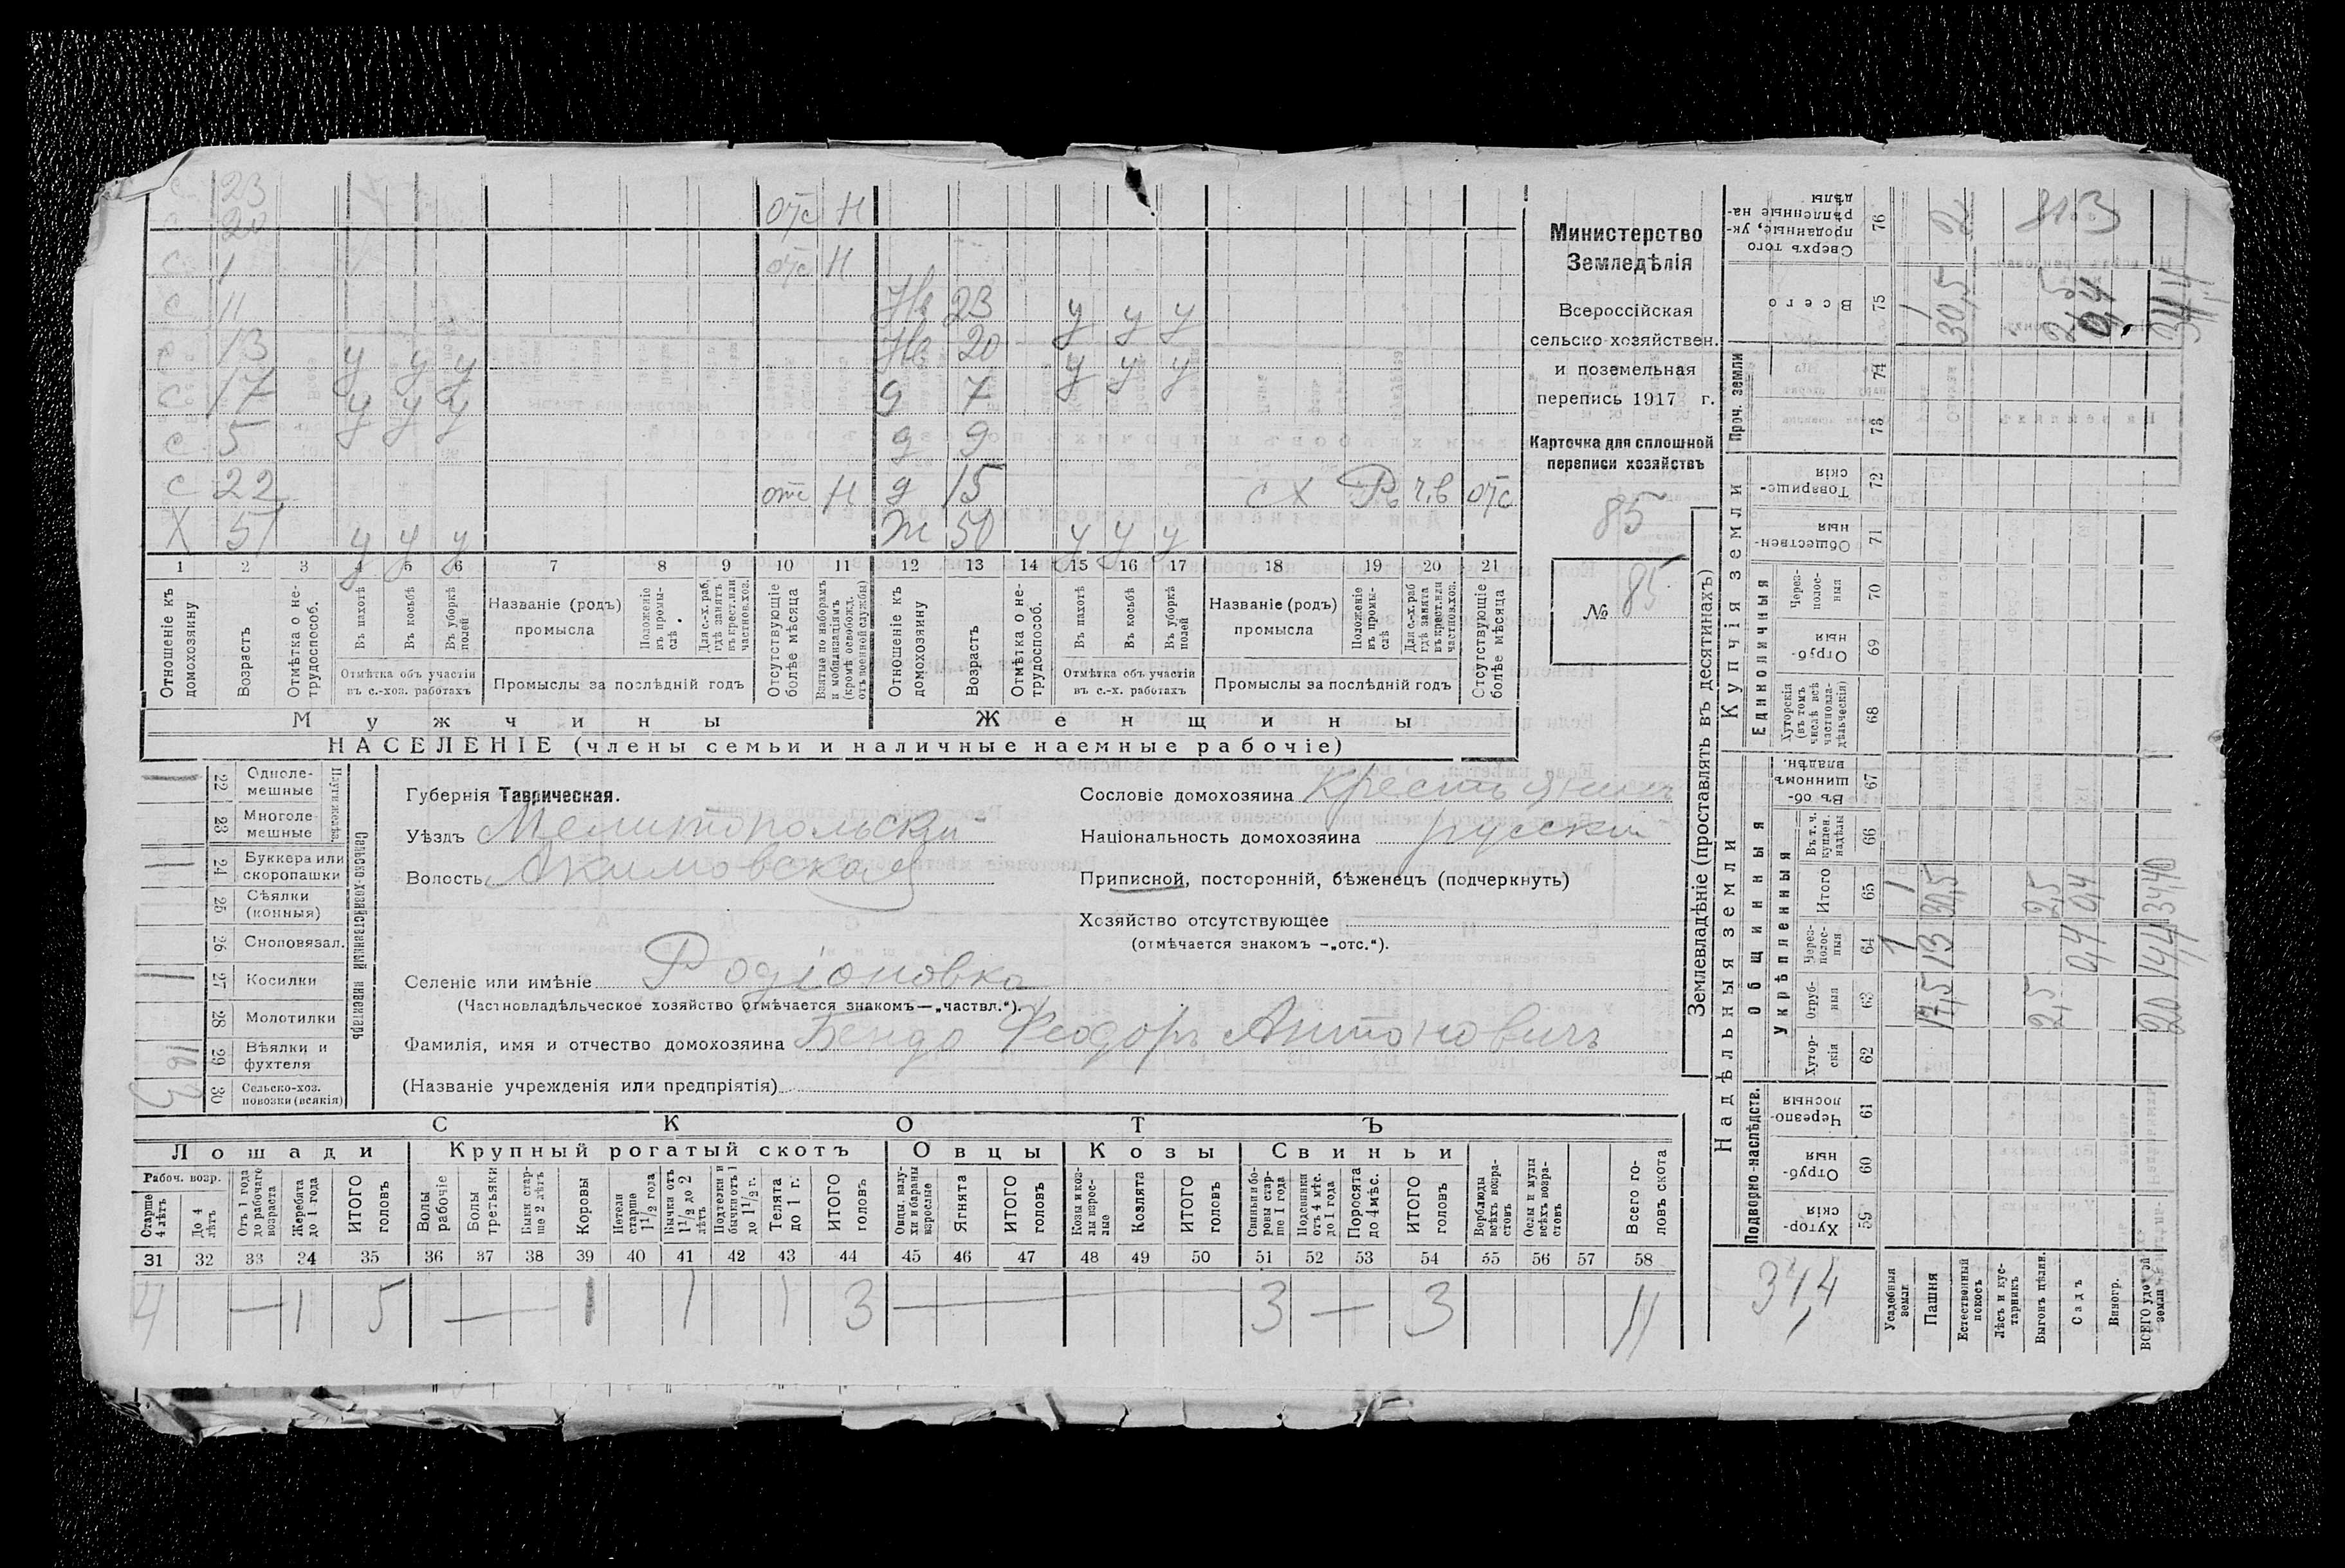 С 23
С 20 отс Н
С 1 отс Н
С 11 Нв 23 у у у
С 13 у у у Нв 20 у у у
С 17 у у у д 7
С 5 д 9
С 22 отс Н д 15 С Х Р ч.в отс
Х 51 у у у ж 50 у у у
1 2 3 4 5 6 7 8 9 10 11 12 13 14 15 16 17 18 19 20 21
Отношеніе къ домохозяину
Возрастъ
Отмѣтка о не-трудоспособ.
Въ пахотѣ
Въ косьбѣ
Въ уборкѣ полей
Отмѣтка объ участіи
въ с.-хоз. работахъ
Названіе (родъ)
промысла
Положеніе въ промы-слѣ
Для с.-х. раб, гдѣ занятъ въ крест. или частнов. хоз.
Промыслы за послѣдній годъ
Отсутствующіе болѣе мѣсяца
Взятые по наборамъ и мобилизаціямъ (кромѣ освобожд. отъ военной службы)
Отношеніе къ домохозяину
Возрастъ
Отмѣтка о не-трудоспособ.
Въ пахотѣ
Въ косьбѣ
Въ уборкѣ полей
Отмѣтка объ участіи
въ с.-х. работахъ
Названіе (родъ)
промысла
Положеніе въ промы-слѣ
Для с.-х. раб гдѣ занята въ крест. или частнов. хоз.
Промыслы за послѣдній годъ
Отсутствующіе болѣе мѣсяца
Мужчины Женщины
НАСЕЛЕНІЕ (члены семьи и наличные наемные рабочіе)
Министерство
Земледѣлія
Всероссійская
сельско-хозяйствен.
и поземельная
перепись 1917 г.
Карточка для сплошной
переписи хозяйствъ
85
№ 85
1 22 Одноле-мешные
23 Многоле-мешные
1 24 Буккера или скоропашки
25 Сѣялки (конныя)
26 Сноповязал.
1 27 Косилки
28 Молотилки
1 29 Вѣялки и фухтеля
30 Сельско-хоз. повозки (всякія)
Сельско-хозяйственный инвентарь
Губернія Таврическая.
Уѣздъ Мелитопольскій
Волость Акимовская
Сословіе домохозяина Крестьянинъ
Національность домохозяина русскій
Приписной, посторонній, бѣженецъ (подчеркнуть)
Хозяйство отсутствующее
(отмѣчается знакомъ —„отс.“).
Селеніе или имѣніе Родіоновка
(Частновладѣльческое хозяйство отмѣчается знакомъ—„частвл.“).
Фамилія, имя и отчество домохозяина Бенда Феодоръ Антоновичъ
(Названіе учрежденія или предпріятія)
СКОТЪ
Лошади Крупный рогатый скотъ Овцы Козы Свиньи
Рабоч. возр.
Старше 4 лѣтъ
До 4 лѣтъ
Отъ 1 года до рабочаго возраста
Жеребята до 1 года
ИТОГО головъ
Волы рабочіе
Волы третьяки
Быки стар-ше 2 лѣтъ
Коровы
Нетели старше 1 1/2 года
Бычки отъ 1 1/2 до 2 лѣтъ
Подтелки и бычки отъ 1 до 1 1/2 г.
Телята до 1 г.
ИТОГО головъ
Овцы, валу-хи и бараны взрослые
Ягнята
ИТОГО головъ
Козы и коз-лы взрос-лые
Козлята
ИТОГО головъ
Свиньи и бо-ровы стар-ше 1 года
Подсвинки отъ 4 мѣс. до 1 года
Поросята до 4 мѣс.
ИТОГО головъ
Верблюды всѣхъ возра-стовъ
Ослы и мулы всѣхъ возра-стовъ
Всего го-ловъ скота
31 32 33 34 35 36 37 38 39 40 41 42 43 44 45 46 47 48 49 50 51 52 53 54 55 56 57 58
4 — 1 5 — 1 1 1 3 — 3 — 3 11
Землевладѣніе (проставлять въ десятинахъ)
Надѣльныя земли Купчія земли Проч. земли
Подворно-наслѣдств.
Общинныя
Укрѣпленныя
Единоличныя
Сверхъ того проданные, ук-рѣпленные на-дѣлы 76
Всего 75
74
73
Товарище-скія 72
Обществен-ныя 71
Через-полос-ныя 70
Отруб-ныя 69
Хуторскія (въ томъ числѣ всѣ частновла-дѣльческія) 68
Въ об-щинномъ владѣн. 67
Въ т. ч. куплен. надѣлы 66
Итого 65
Через-полос-ныя 64
Отруб-ныя 63
Хутор-скія 62
Черезпо-лосныя 61
Отруб-ныя 60
Хутор-скія 59
Усадебныя земли
Пашня
Естественный покосъ
Лѣсъ и кус-тарникъ
Выгонъ цѣлин.
Садъ
Виногр.
1 30,5 2,5 0,4
1 30,5 2,5 0,4 34,40
1 13 0,4 14,4
17,5 2,5 20
34,4